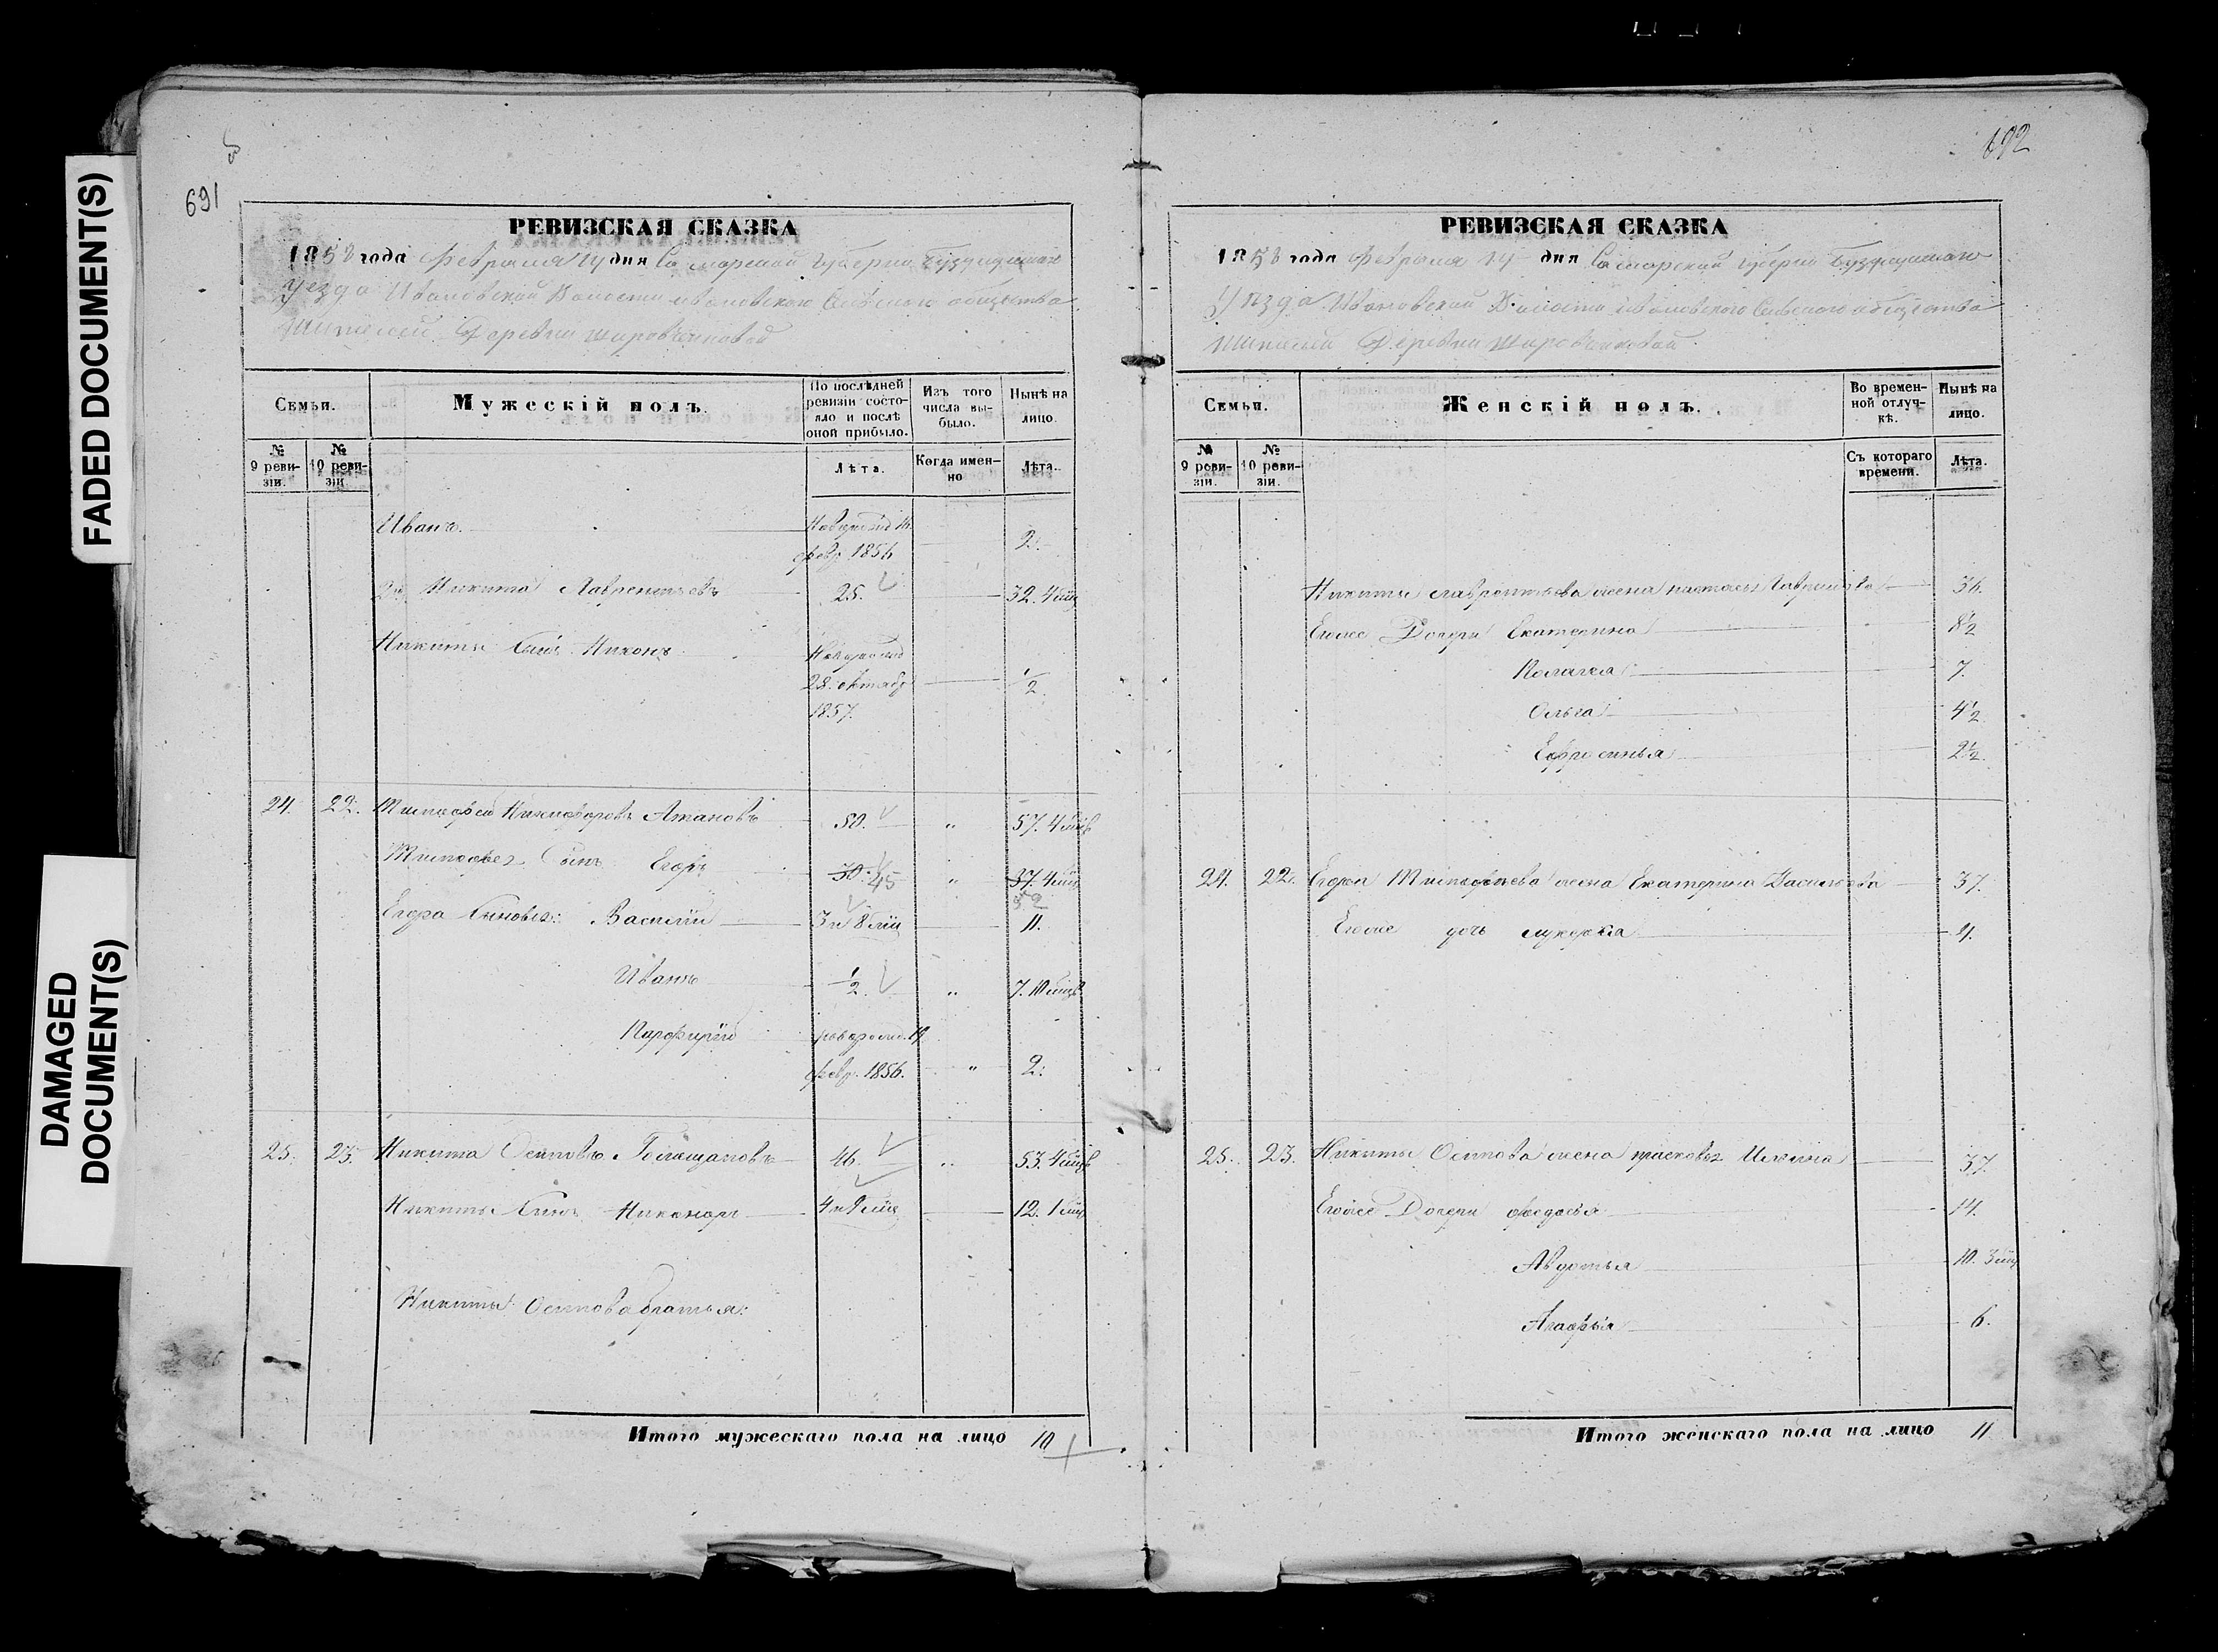 FADED DOCUMENT(S)
DAMAGED
DOCUMENT(S)
691
РЕВИЗСКАЯ СКАЗКА
1858 года Февраля 14 дня Самарской губерніи Бузулукскаго
Уезда Ивановской Волости Ивановского Сельского общества
Деревни
Семьи.
Мужескій полъ.
По послѣдней ревизіи состояло и послѣ оной прибыло.
Изъ того числа выбыло.
Нынѣ на лицо.
№ 9 ревизіи.
№ 10 ревизіи
Лѣта.
Когда именно
Лѣта.
Иванъ
февр. 1856
2.
2й Никита Лаврентьевъ 25. 32. 4
Никиты Сынъ Никонъ
28 октябр 1/2
1857.
24. 22. Тимофей Никифоровъ Атановъ 50. " 57. 4
Тимофея Сынъ Егоръ 30. 45 " 37. 4
52
Егора Сыновья: Василій 3 и 8 11.
Иванъ 1/2 " 7. 10
Парфирій
февр. 1856. " 2.
25. 23. Никита Осиповъ 46. " 53. 4
Никиты Сынъ Никаноръ 12. 1
Никиты Осипова братья:
Итого мужескаго пола на лицо 10
692
РЕВИЗСКАЯ СКАЗКА
1858 года Февраля 14 дня Самарской губерніи Бузулукскаго
Уѣзда Ивановской Волости Ивановского Сельского общества
Деревни
Семьи.
Женскій полъ.
Во временной отлучкѣ.
Нынѣ на лицо.
№ 9 ревизіи.
№ 10 ревизіи.
Съ котораго времени.
Лѣта.
Никиты Лаврентьева жена Настасья 36.
Егоже Дочери Екатерина 8 1/2
Пелагея 7.
Ольга 4 1/2
Ефросинья 2 1/2
24. 22. Егора Тимофеева жена Екатерина Васильева 37.
Егоже дочь 4.
25. 23. Никиты Осипова жена Прасковья Ильина 37.
Егоже Дочери Федосья 14.
Авдотья 10. 3
Агафья 6.
Итого женскаго пола на лицо 11